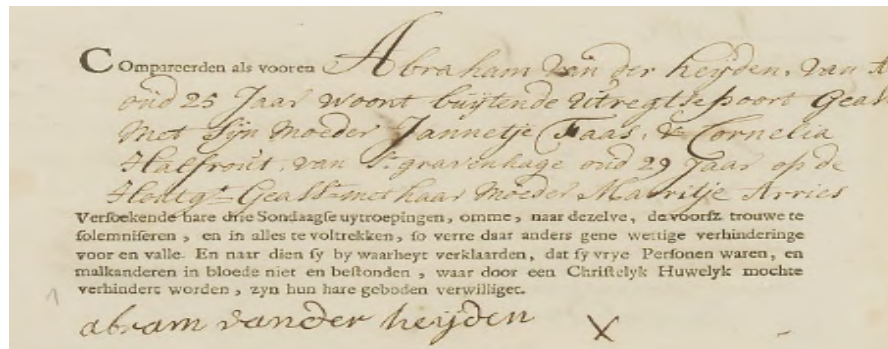 COmpareerden als vooren Abraham van der heijden, van A
oud 25 Jaar woont buijtende Utregtsepoort Geass
Met Sijn Moeder Jannetje Faas, & Cornelia
Halfrout, van S: gravenhage oud 29 Jaar op de
Houtgt. Geasst. met haar Moeder Marritje Arries
Versoekende hare drie Sondaagse uytroepingen, omme, naar dezelve, de voorsz. trouwe te
solemniseren, en in alles te voltrekken, so verre daar anders gene wettige verhinderinge
voor en valle. En naar dien sy by waarheyt verklaarden, dat sy vrye Personen waren, en
malkanderen in bloede niet en bestonden, waar door een Christelyk Huwelyk mochte
verhindert worden, zyn hun hare geboden verwilliget.
abram vander heijden X